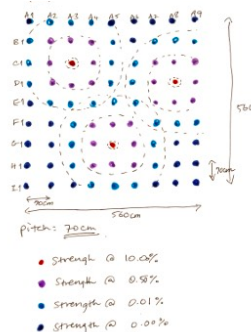 A1 A2 A3 A4 A5 A6 A7 A8 A9
B1
C1
D1
E1
F1
G1
H1
I1
560cm
pitch: 70cm
Strength @ 10.00%
Strength @ 0.50%
Strength @ 0.01%
Strength @ 0.00%